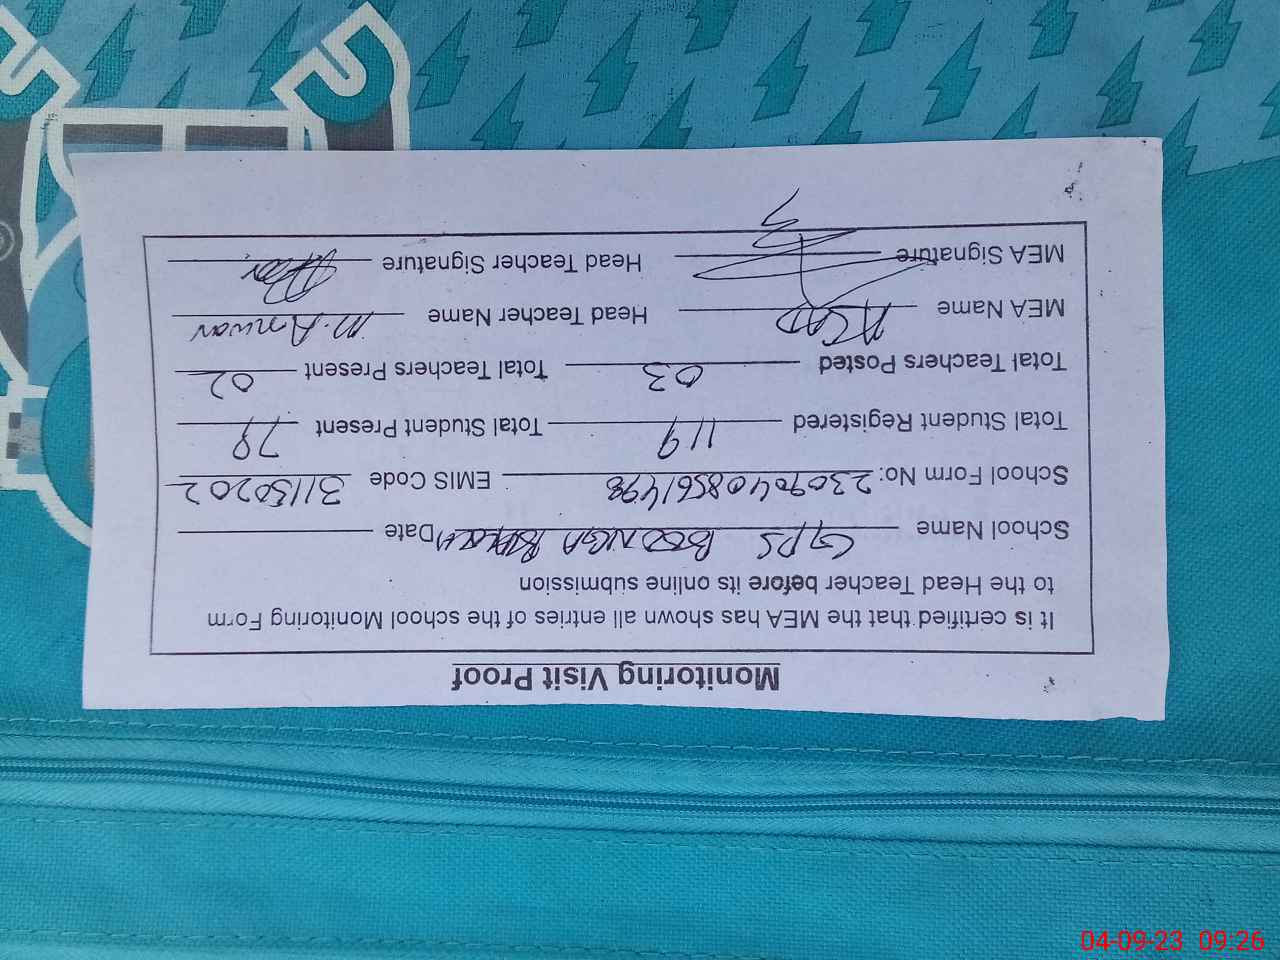 Monitoring Visit Proof
It is certified that the MEA has shown all entries of the school Monitoring Form
to the Head Teacher before its online submission
School Name GPS BOONGA Date
School Form No: 23090408561498 EMIS Code 31130202
Total Student Registered 119 Total Student Present 78
Total Teachers Posted 03 Total Teachers Present 02
MEA Name ASAD Head Teacher Name M. Anwar
MEA Signature Head Teacher Signature
04-09-23 09:26